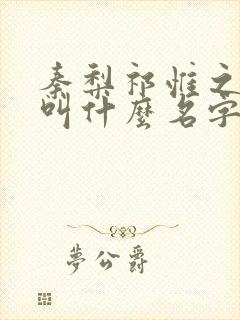 秦梨祁惟之
叫什麼名字
夢公爵